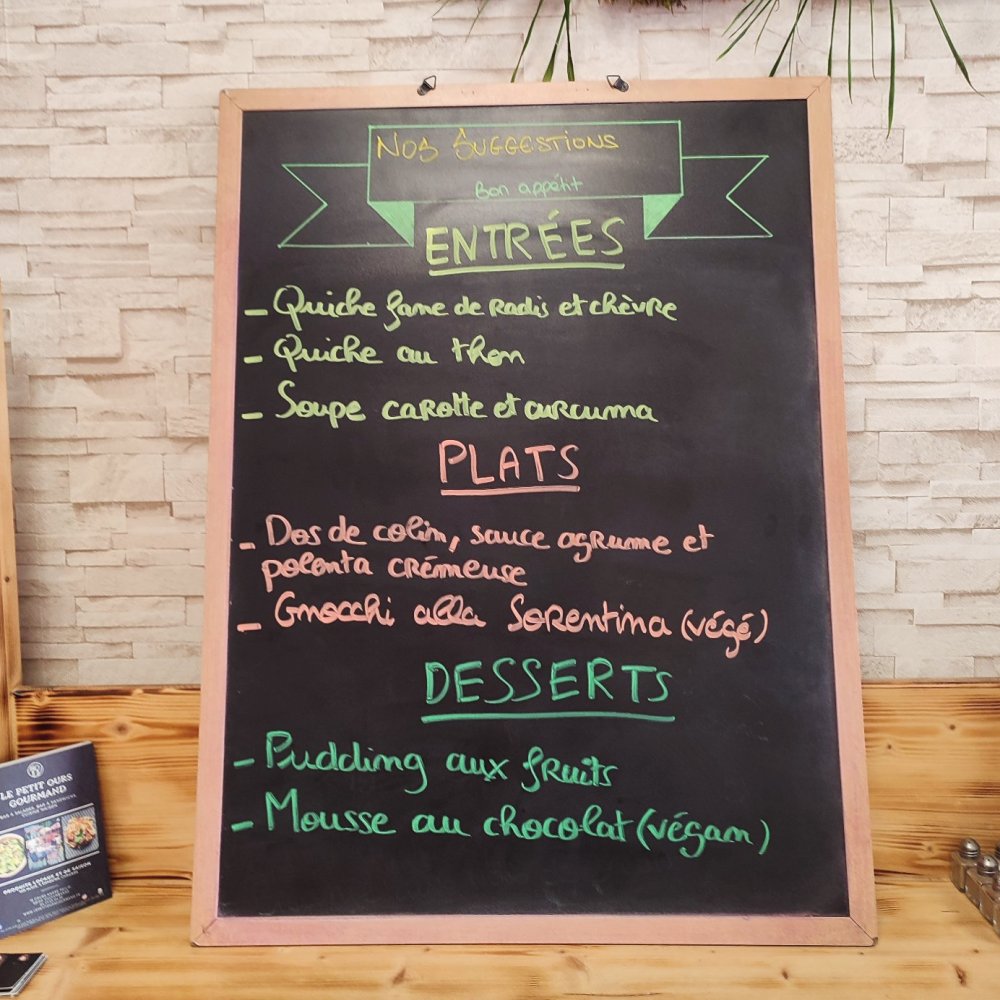 NOS SUGGESTIONS
Bon appétit
ENTRÉES
- Quiche fane de Radis et chèvre
- Quiche au thon
- Soupe carotte et curcuma
PLATS
- Dos de colin, sauce agrume et
polenta crémeuse
- Gnocchi alla Sorentina (végé)
DESSERTS
- Pudding aux fruits
- Mousse au chocolat (végan)
LE PETIT OURS
GOURMAND
PRODUITS LOCAUX ET DE SAISON